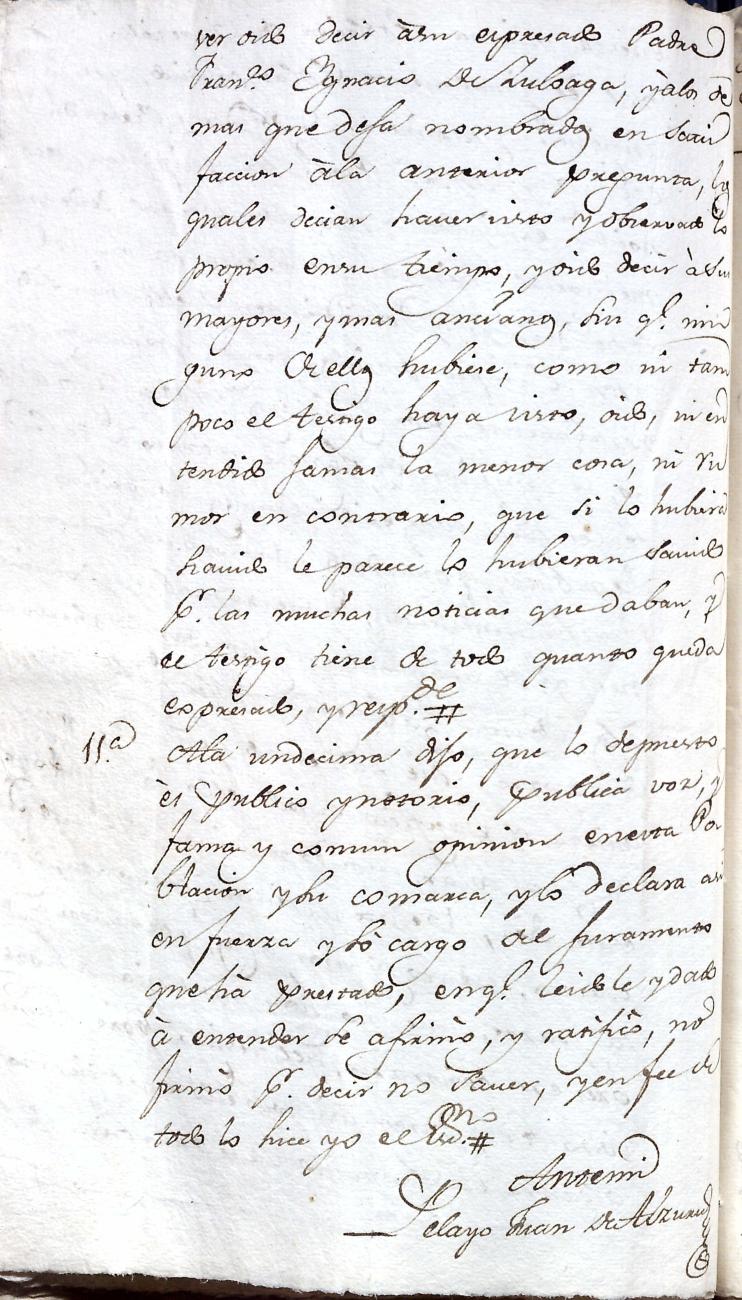 ver oido decir à su expresado Padre
Fran.co Ygnacio de Zuloaga, y à los de
mas que deja nombrados en satis
faccion à la anterior pregunta, los
quales decian haver visto y observado lo
propio en su tiempo, y oido decir à sus
mayores, y mas ancianos, sin q.e nin
guno de ellos hubiese, como ni tam
poco el testigo haya visto, oido, ni en
tendido jamas la menor cosa, ni ru
mor en contrario, que si lo hubiera
havido le parece lo hubieran savido
p.r las muchas noticias que daban, y
el testigo tiene de todo quanto queda
expresado, y resp.de #
11.a A la undecima dijo, que lo depuesto
es publico y notorio, publica voz, y
fama y comun opinion en esta Po
blacion y su comarca, y lo declara asi
en fuerza y sò cargo del juramento
que hà prestado, en q.e leidole y dado
à entender se afirmò, y ratificò, no
firmò p.r decir no saver, y en fee de
todo lo hice yo el Ess.no #
Antemi
Pelayo Juan de